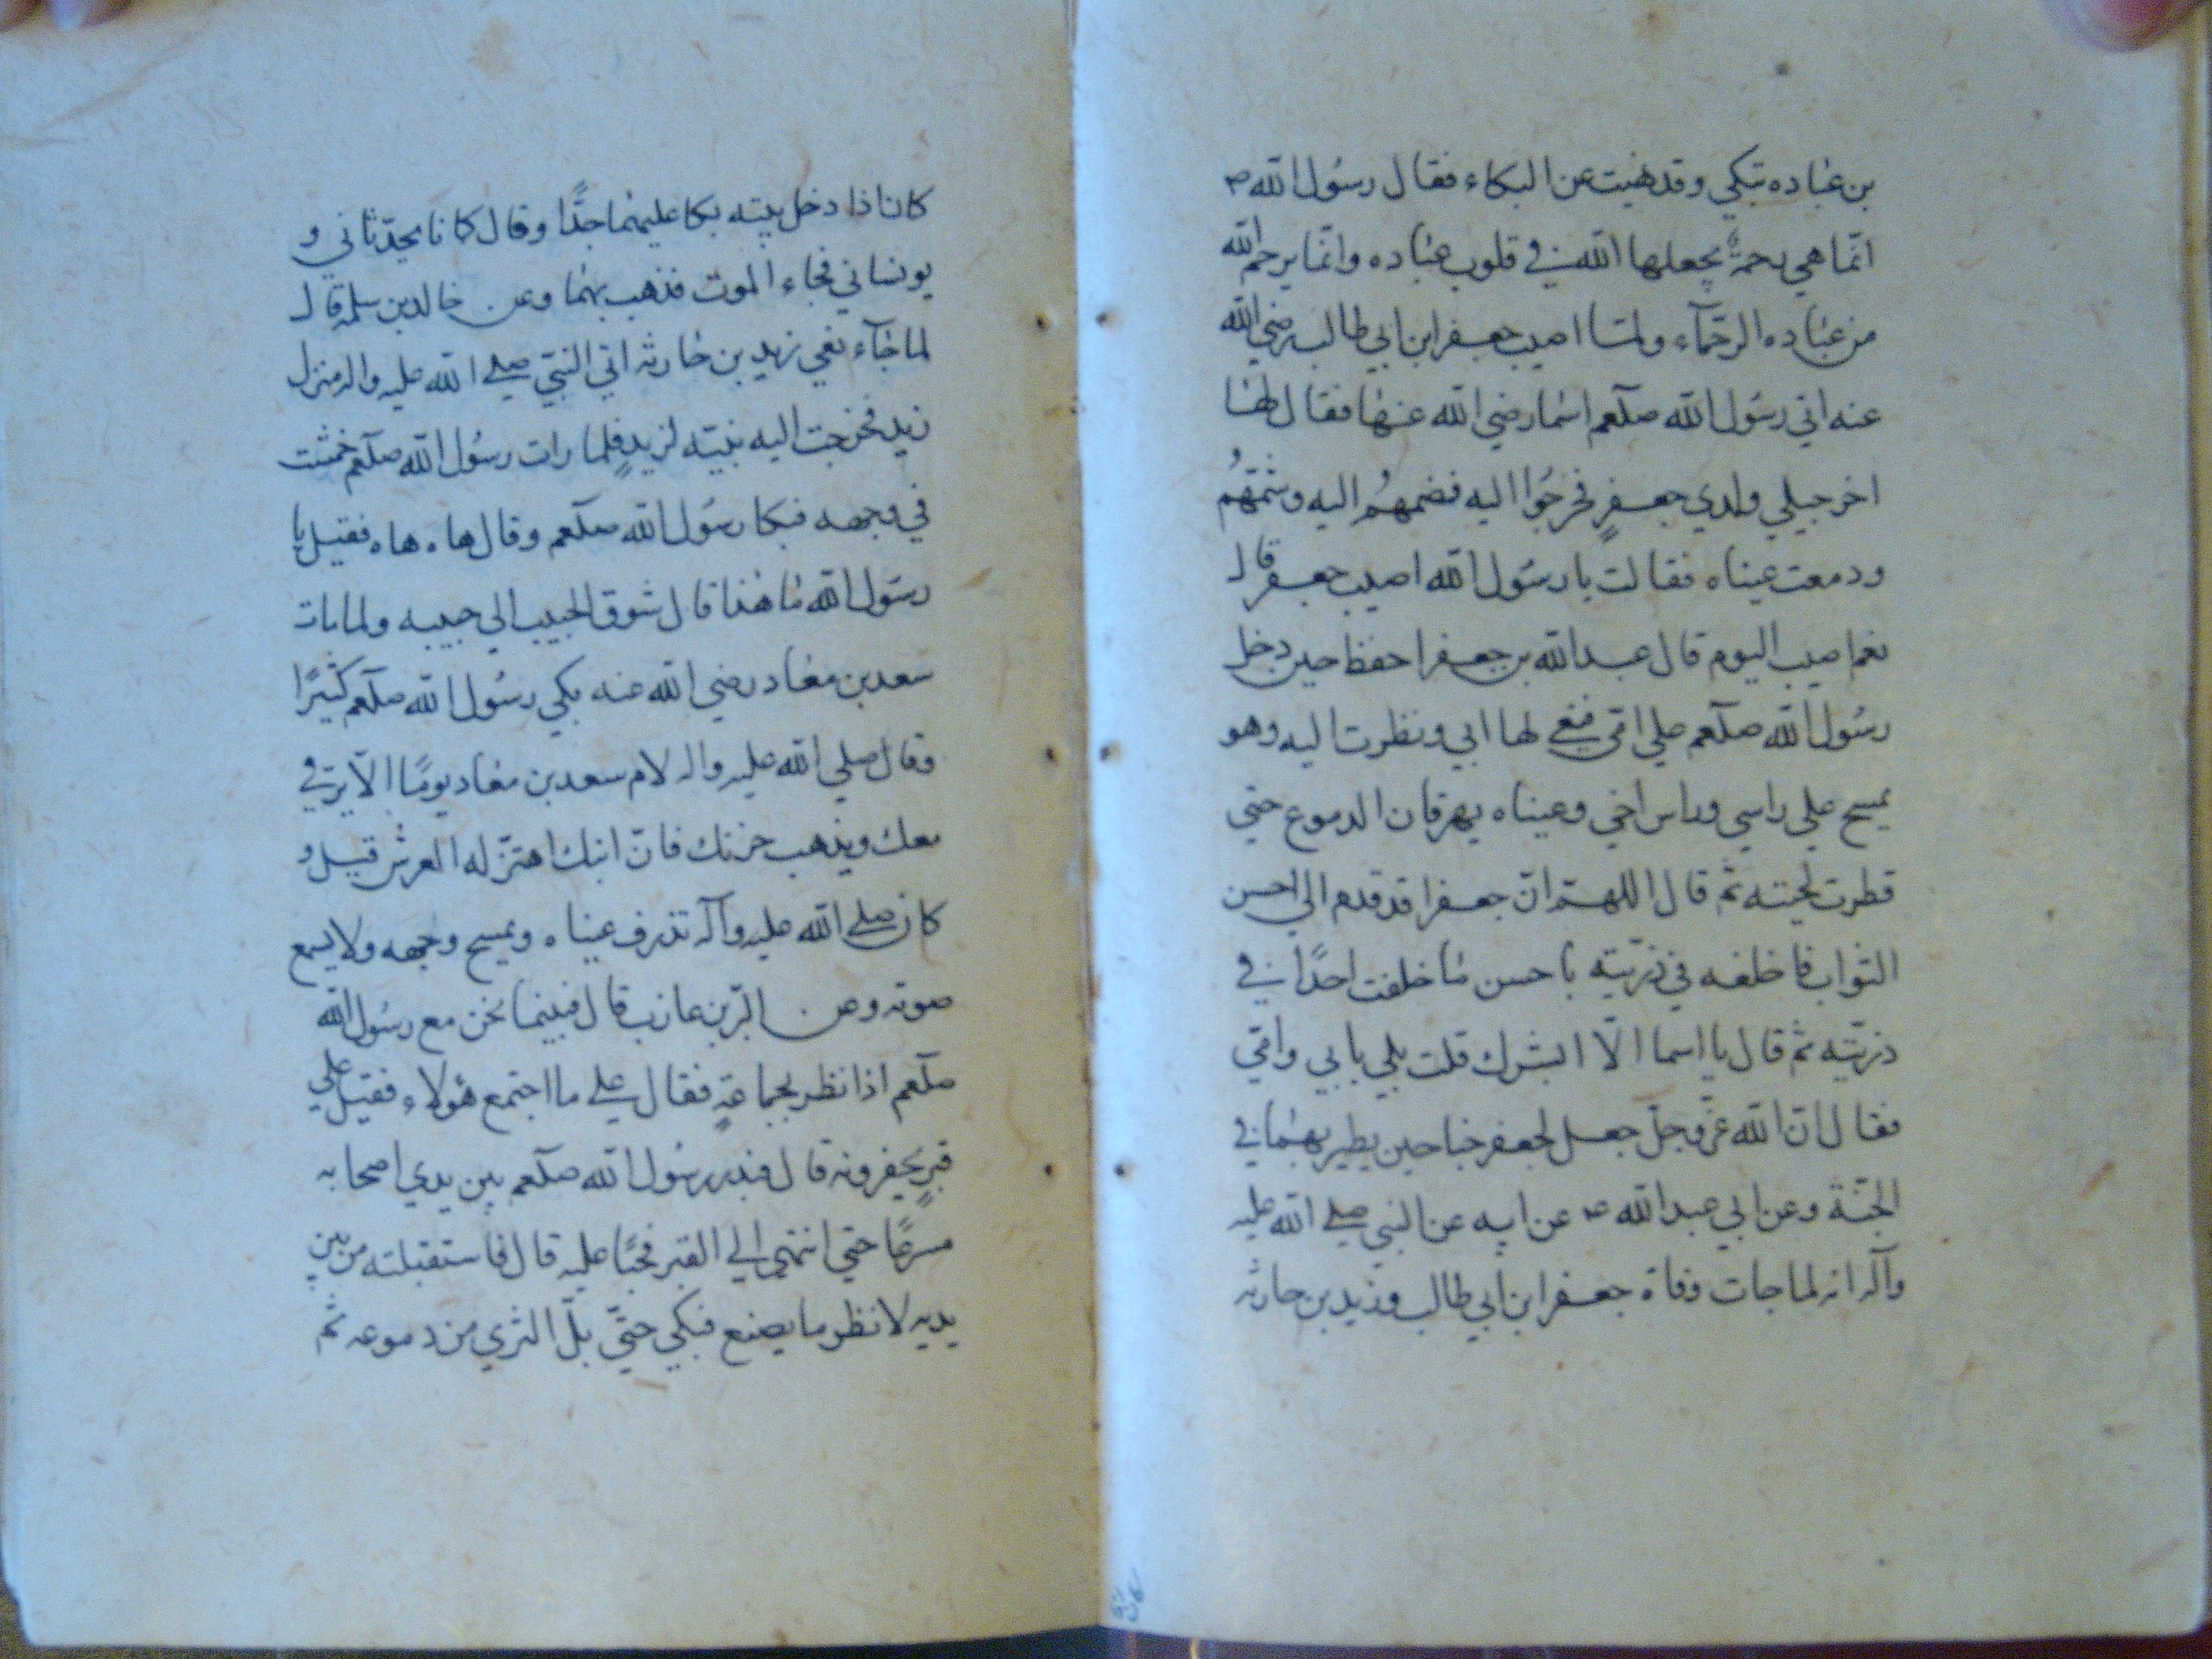 بن عباده تبكي وقد نهيت عن البكاء فقال رسول الله ص
انّما هي رحمةٌ يجعلها الله في قلوب عباده وانّما يرحم الله
من عباده الرحمآء ولمّا اصيب جعفر ابن ابي طالب رضي الله
عنه اتي رسول الله صلعم اسما رضي الله عنها فقال لها
اخرجيلي ولدي جعفرٍ فخرجوا اليه فضمهُم اليه وشمّهُم
ودمعت عيناه فقالت يا رسول الله اصيب جعفر قال
نعم اصيب اليوم قال عبد الله بن جعفر احفظ حين دخل
رسُول الله صلعم علي امّي فنعي لها ابي ونظرت اليه وهو
يمسح علي راسي وراس اخي وعيناه يهرقان الدموع حتي
قطرت لحيته ثم قال اللهمّ انّ جعفرا قد قدم الي احسن
الثواب فاخلفه في ذرّيته باحسن ما خلفت احدًا في
ذرّيته ثم قال يا اسما الّا ابشرك قلت بلي بابي وامّي
فقال انّ الله عزّوجلّ جعل لجعفر جناحين يطير بهما في
الجنّة وعن ابي عبد الله ع عن ابيه عن النبي صلي الله عليه
وآله انه لما جات وفاة جعفر ابن ابي طالب وزيد بن حارثه
كان اذا دخل بيته بكا عليهما جدًّا وقال كانا يحدّثاني و
يونساني فجاء الموت فذهب بهما وعن خالد بن سلمه قال
لما جآء نعي زيد بن حارثه اتي النبّي صلي الله عليه واله منزل
زيد فخرجت اليه بنيته لزيدٍ فلما رات رسُول الله صلعم خمشت
في وجهه فبكا رسُول الله صلعم وقال هاه هاه فقيل يا
رسول الله ما هذا قال شوق الحبيب الي حبيبه ولما مات
سعد بن معاد رضي الله عنه بكي رسُول الله صلعم كثيرًا
وقال صلي الله عليه واله لام سعد بن معاد يومًا الّا يرتي
معك ويذهب حزنك فانّ ابنك اهتزّ له العرش قيل و
كان صلي الله عليه وآله تذرف عيناه ويمسح وجهه ولا يسمع
صوته وعن البرّ بن عازب قال فبينما نحن مع رسُول الله
صلعم اذا نظر بجماعةٍ فقال علي ما اجتمع هٔولاء فقيل علي
قبرٍ يحفرونه قال فبدر رسُول الله صلعم بين يدي اصحابه
مسرعًا حتي انتهي الي القبر فجثا عليه قال فاستقبلته من بين
يديه لانظر ما يصنع فبكي حتّي بلّ الثري من دموعه ثم